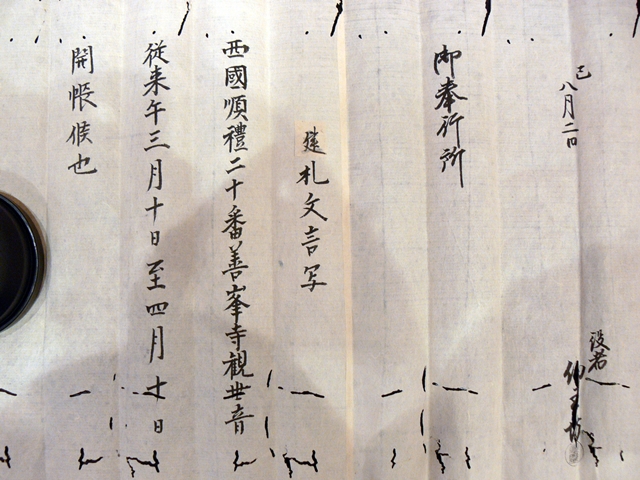 巳
八月二日
役者
御奉行所
建札文言写
西國順禮二十番善峯寺觀世音
従来午三月十日至四月十日
開帳候也